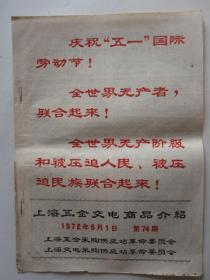 庆祝“五一”国际
劳动节！
全世界无产者，
联合起来！
全世界无产阶级
和被压迫人民、被压
迫民族联合起来！
上海五金交电商品介紹
1972年5月1日 第74期
上海五金采购供应站革命委员会
上海交电采购供应站革命委员会